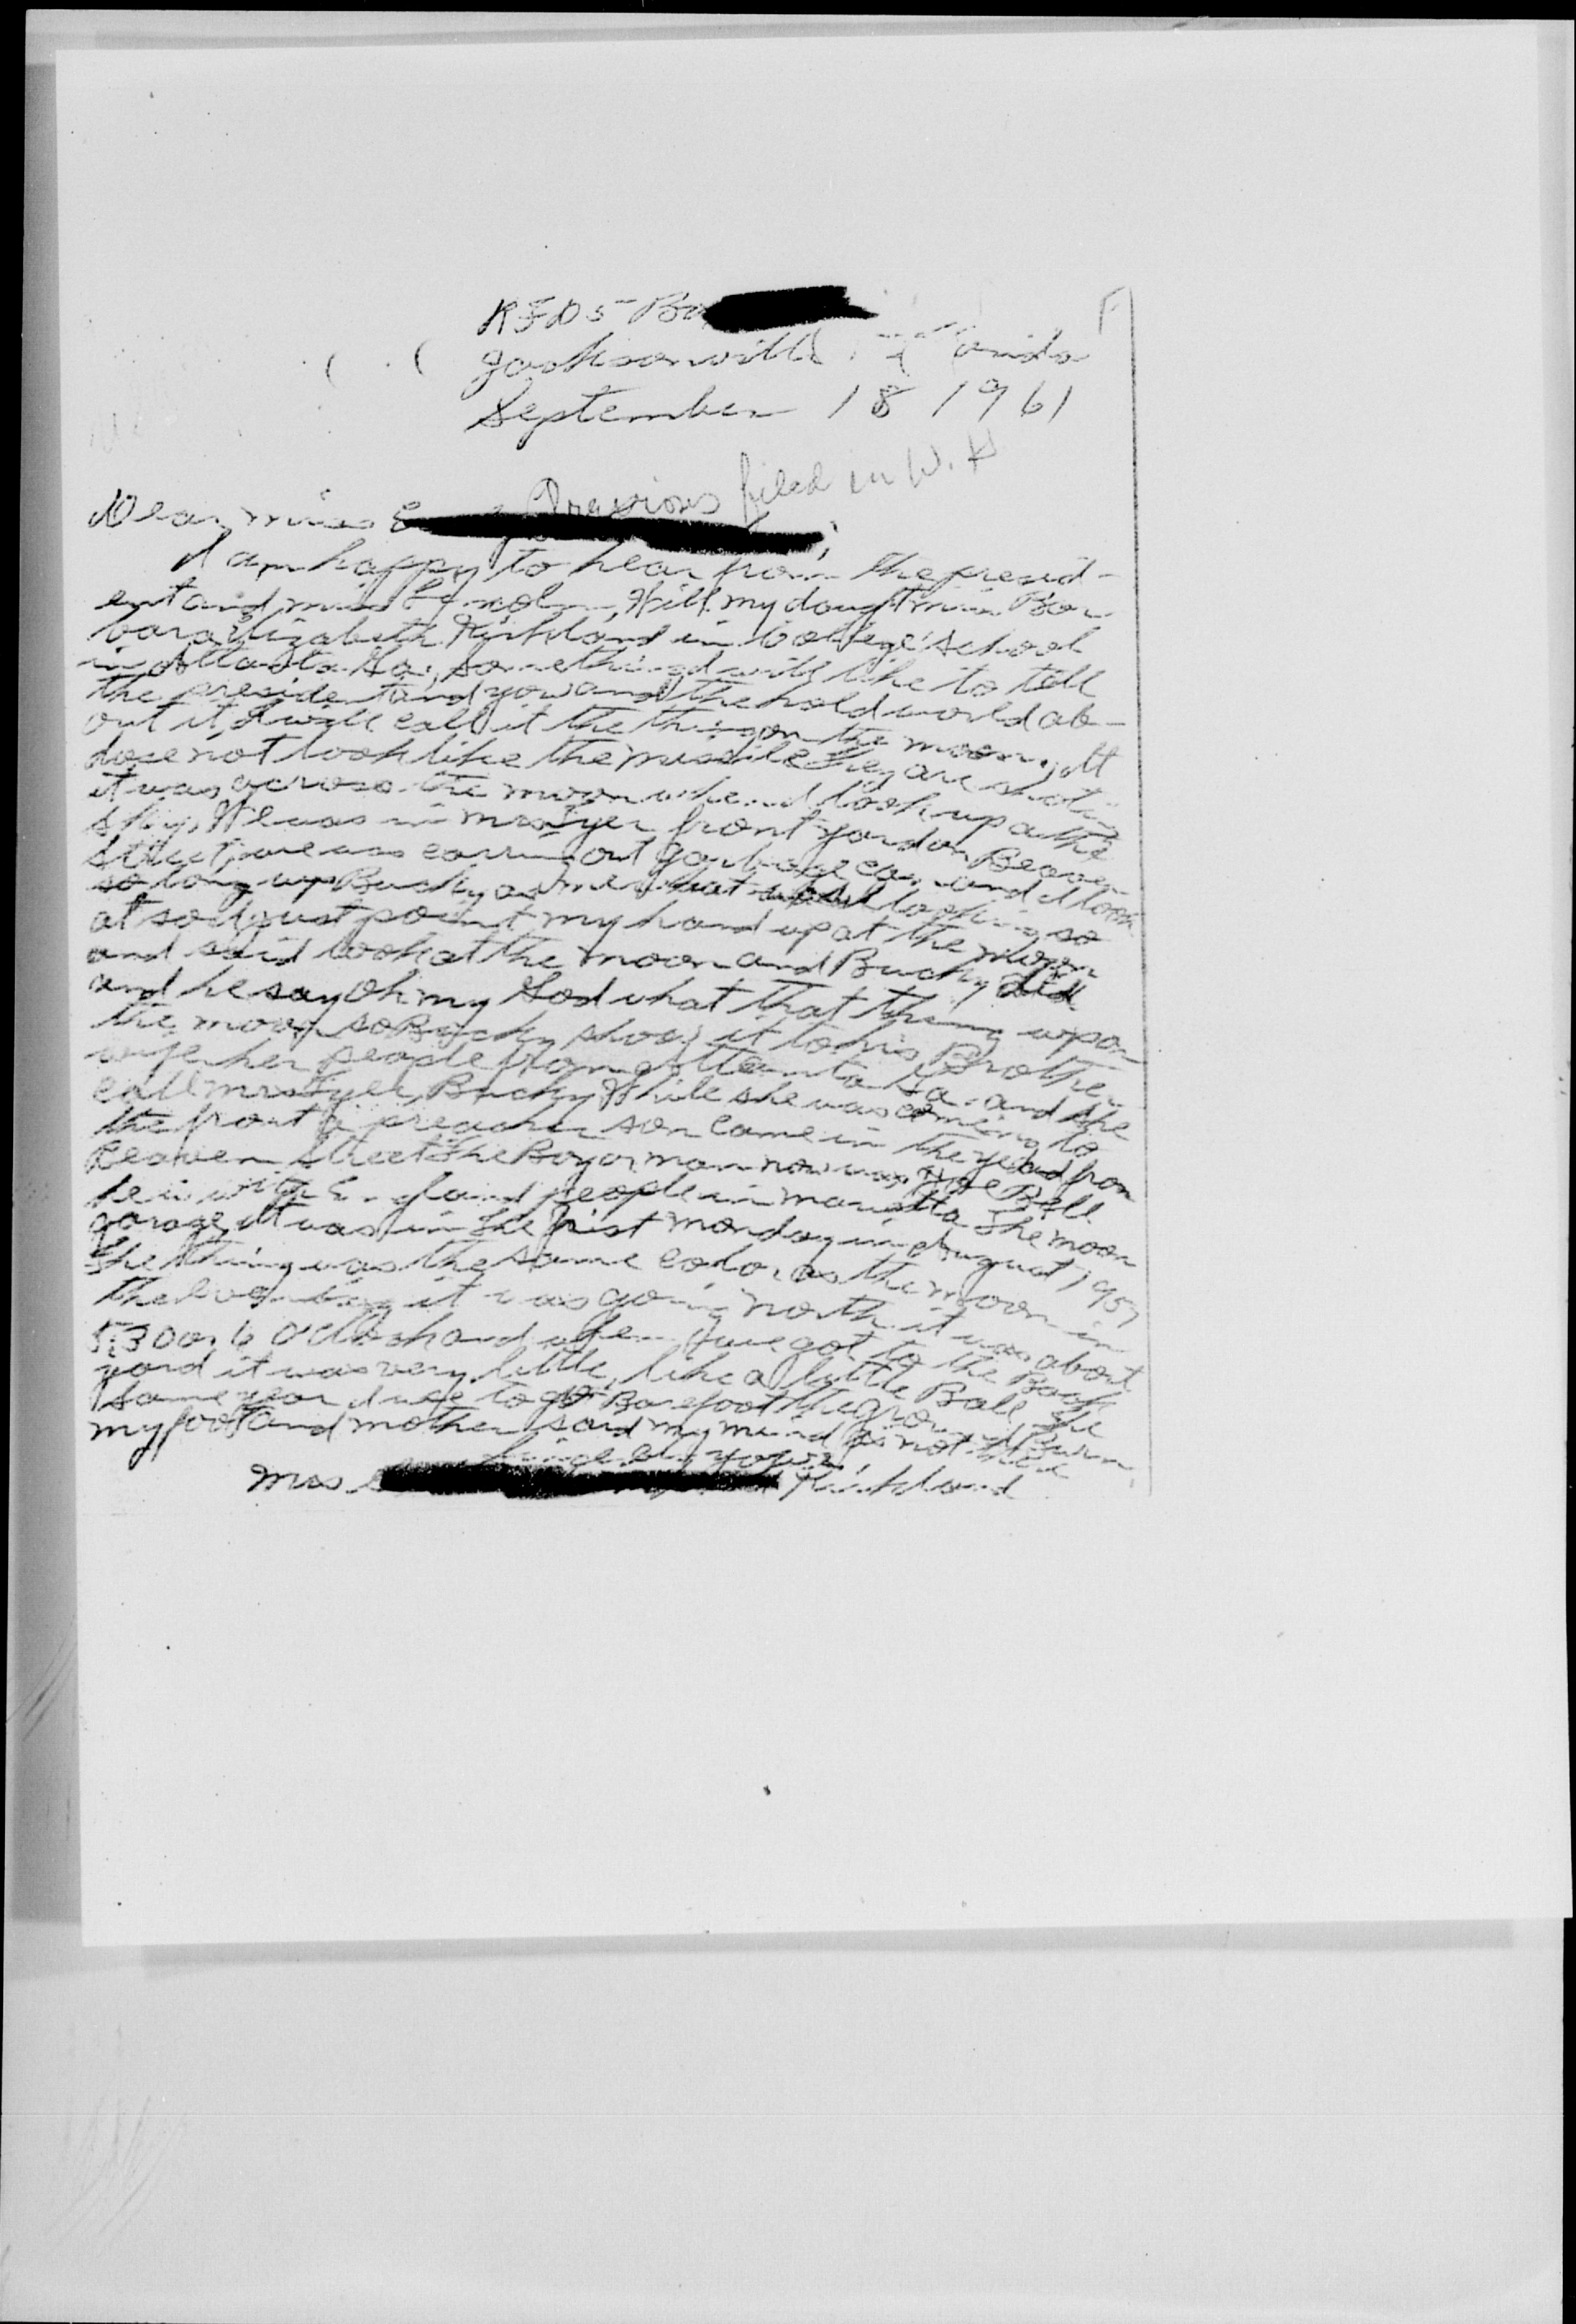 RFD 5 Bo
Jacksonville
September 18 1961
Previous filed in W. H
Dear miss
I am happy to hear from the presid-
ent and miss my dought miss Bar
bara Elizabeth Kirkland in College School
in Atlanta Ga, something I will like to tell
the president and you and the hold world ab-
out it, I will call it the thing on the moon, It
does not look like the missile they are shoting
it was across the moon when I look up at the
sky, We was in mrs Tyer front yard on Beaver
Street, we was carring out garbage can and I look
so long up Bucky as me what looking so
at so I just point my hand up at the moon
and said look at the moon and Bucky did
and he say Oh my God what that thing upon
the moon so Bucky show it to his Brother
wife her people from Atlanta Ga. and she
call mrs Tyer, Bucky While she was coming to
the front a preacher son came in the yead from
Beaver Street The Boy or man now was Bell
he is with England people in marietta The moon
garage, It was in the first monday in August 1957
The thing was the same color as the moon in
the evening it was going north it was about
5:30 or 6 O'clock and when I have got to the Back
yard it was very little, like a little Ball, the
same year I use to go Barefoot the ground Burn
my foot and mother said my mind is not there
Sincerely yours,
Mrs Kirkland